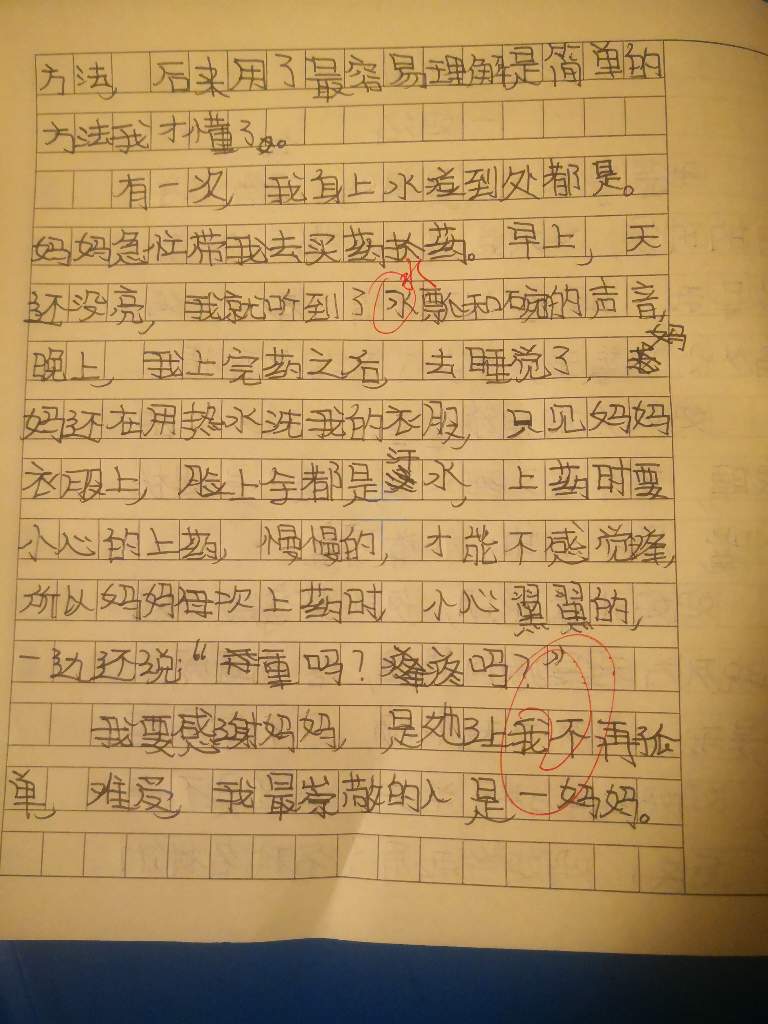 方法,后来用了最容易理解是简单的
方法我才懂了。
有一次,我身上水痘到处都是。
妈妈急忙带我去买药抹药。早上,天
还没亮,我就听到了水瓢和碗的声音,
水
晚上,我上完药之后,去睡觉了,妈
妈还在用热水洗我的衣服,只见妈妈
衣服上,脸上全都是汗水,上药时要
小心的上药,慢慢的,才能不感觉疼,
所以妈妈每次上药时,小心翼翼的,
一边还说:“重吗?疼吗?”
我要感谢妈妈,是她让我不再孤
单,难受,我最崇敬的人是一妈妈。